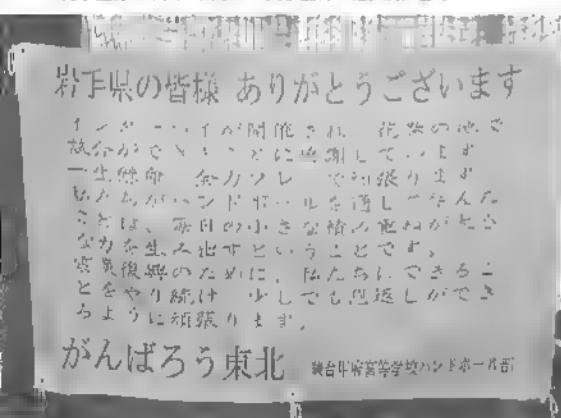 岩手県の皆様 ありがとうございます
インターハイが開催され 花巻の地で
試合ができることに感謝しています
一生懸命 全力プレーで頑張ります
私たちがハンドボールを通して学んだ
ことは、毎日の小さな積み重ねが大き
な力を生み出すということです。
震災復興のために、私たちにできるこ
とをやり続け 少しでも恩返しができ
るように頑張ります。
がんばろう東北 高等学校ハンドボール部